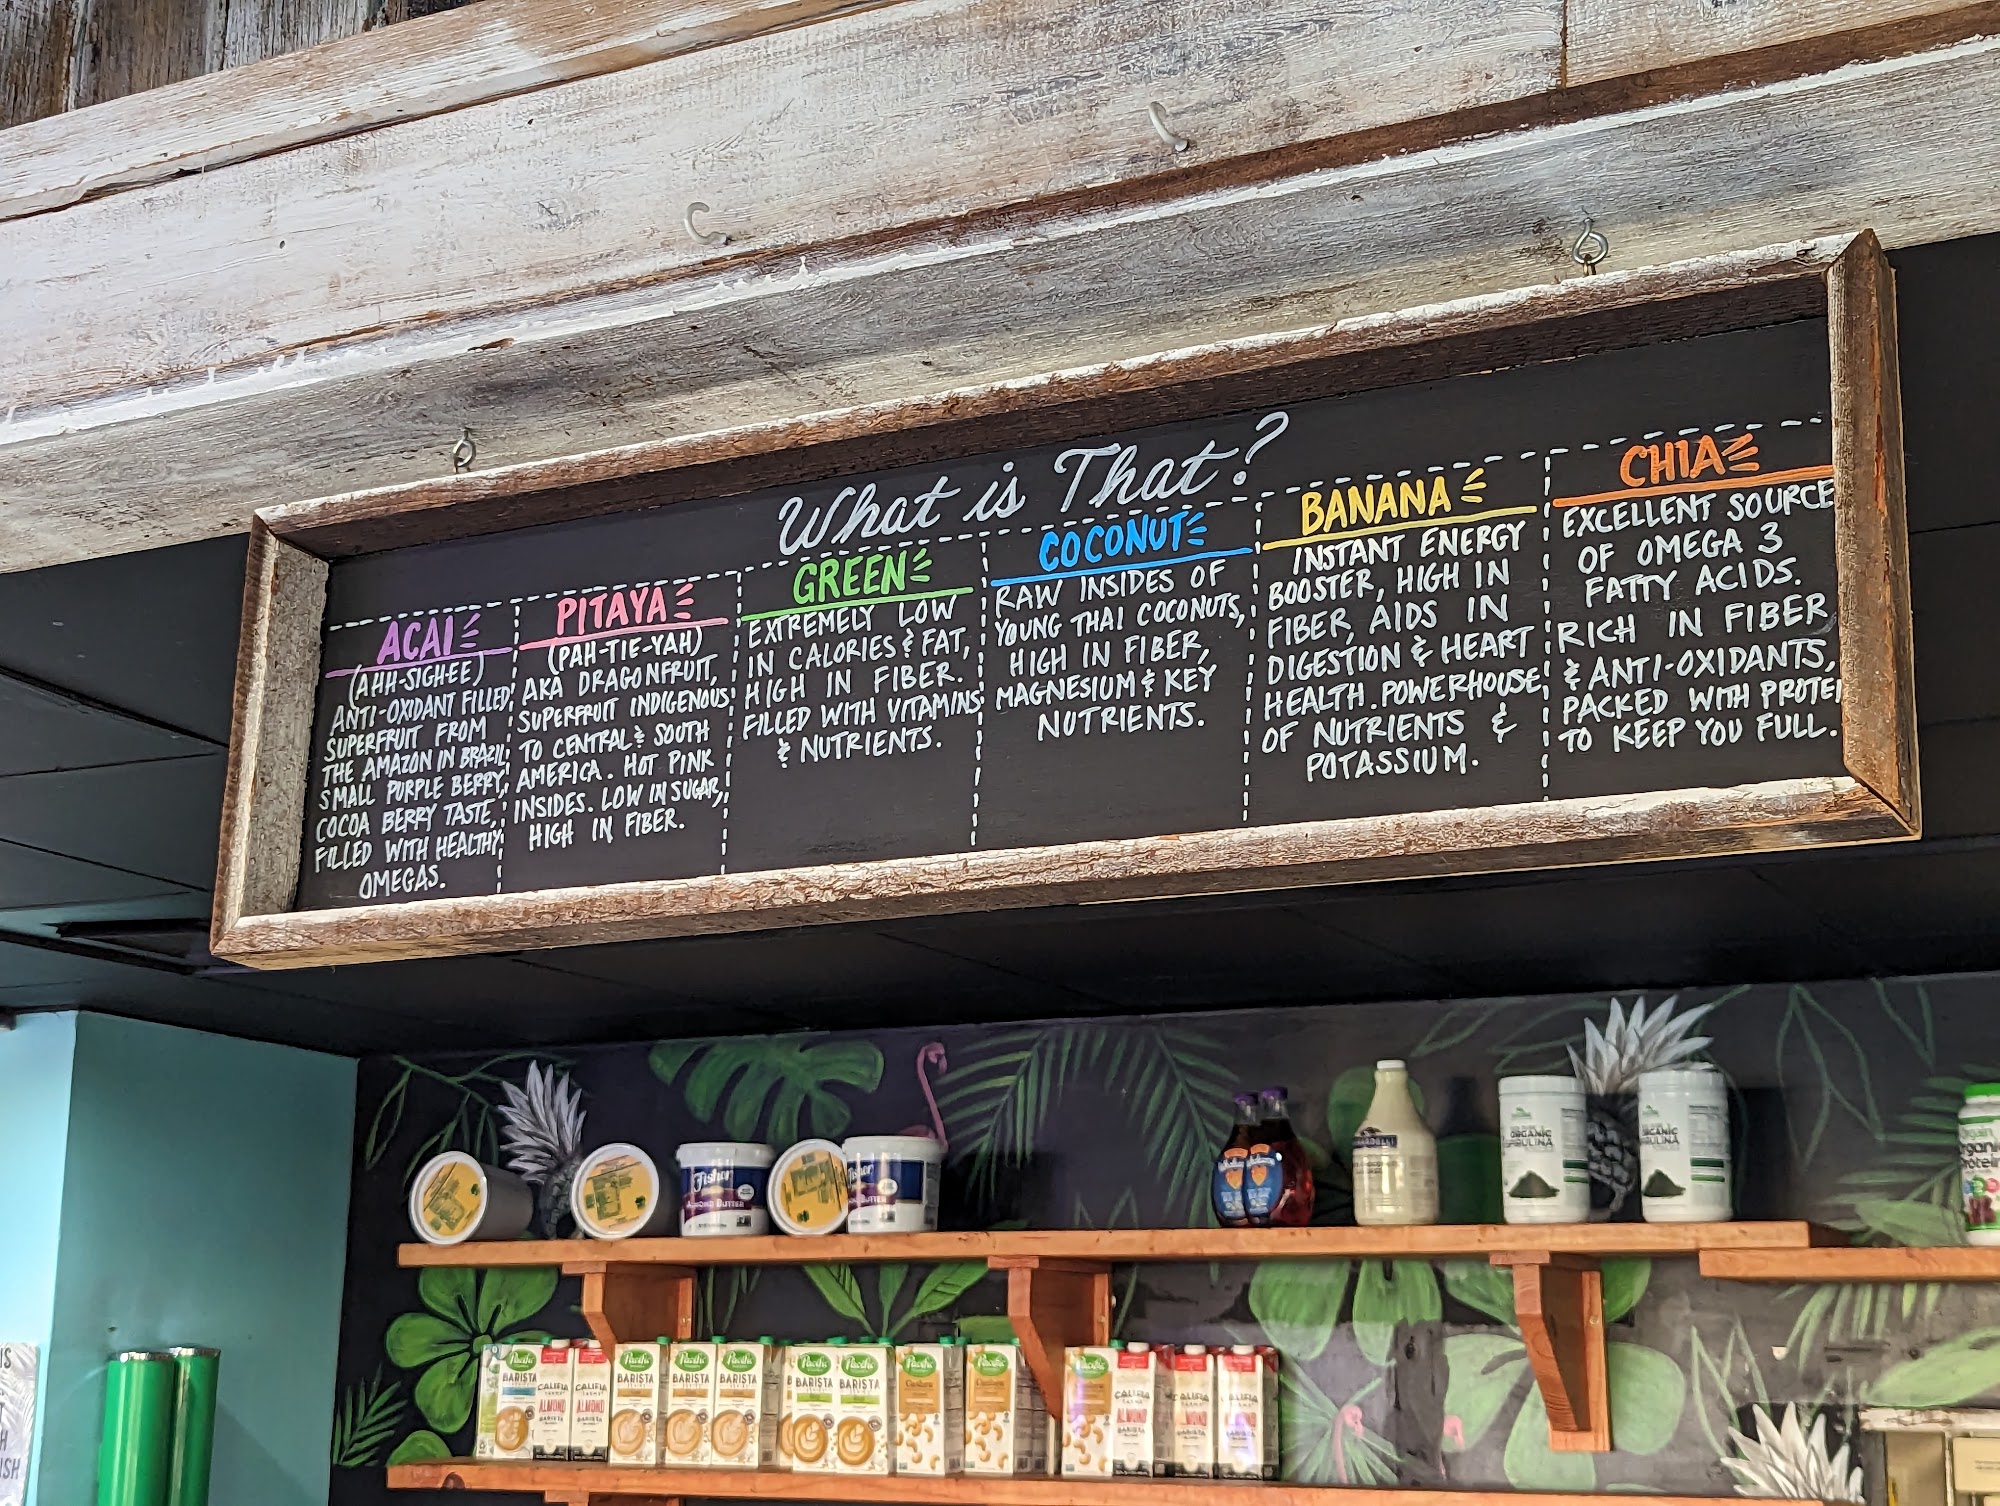 What is That?
ACAI
(AHH-SIGH-EE)
ANTI-OXIDANT FILLED
SUPERFRUIT FROM
THE AMAZON IN BRAZIL.
SMALL PURPLE BERRY,
COCOA BERRY TASTE,
FILLED WITH HEALTHY
OMEGAS.
PITAYA
(PAH-TIE-YAH)
AKA DRAGONFRUIT,
SUPERFRUIT INDIGENOUS
TO CENTRAL & SOUTH
AMERICA. HOT PINK
INSIDES. LOW IN SUGAR,
HIGH IN FIBER.
GREEN
EXTREMELY LOW
IN CALORIES & FAT,
HIGH IN FIBER.
FILLED WITH VITAMINS
& NUTRIENTS.
COCONUT
RAW INSIDES OF
YOUNG THAI COCONUTS,
HIGH IN FIBER,
MAGNESIUM & KEY
NUTRIENTS.
BANANA
INSTANT ENERGY
BOOSTER, HIGH IN
FIBER, AIDS IN
DIGESTION & HEART
HEALTH. POWERHOUSE
OF NUTRIENTS &
POTASSIUM.
CHIA
EXCELLENT SOURCE
OF OMEGA 3
FATTY ACIDS.
RICH IN FIBER
& ANTI-OXIDANTS,
PACKED WITH PROTEI
TO KEEP YOU FULL.
Fisher
ALMOND BUTTER
Fisher
ORGANIC
SPIRULINA
ORGANIC
Pacific
BARISTA
CALIFIA
FARMS
ALMOND
BARISTA
CALIFIA
FARMS
ALMOND
BARISTA
Pacific
BARISTA
Pacific
BARISTA
Pacific
BARISTA
Pacific
BARISTA
Pacific
BARISTA
Pacific
Cashew
Pacific
Pacific
CALIFIA
FARMS
ALMOND
BARISTA
CALIFIA
FARMS
ALMOND
CALIFIA
FARMS
ALMOND